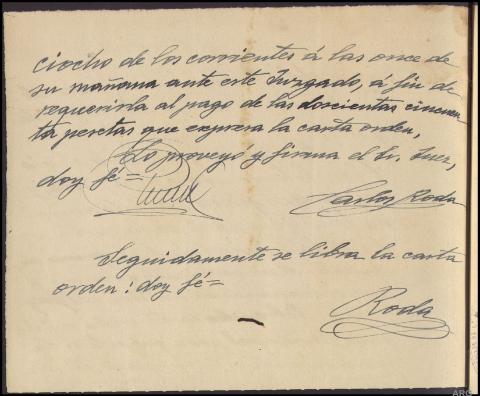 ciocho de los corrientes á las once de
su mañana ante este Juzgado, á fin de
requerirla al pago de las doscientas cincuen
ta pesetas que expresa la carta orden,
Lo proveyó y firma el Sr. Juez,
doy fé=
Carlos Roda
Seguidamente se libra la carta
orden: doy fé=
Roda
ARG